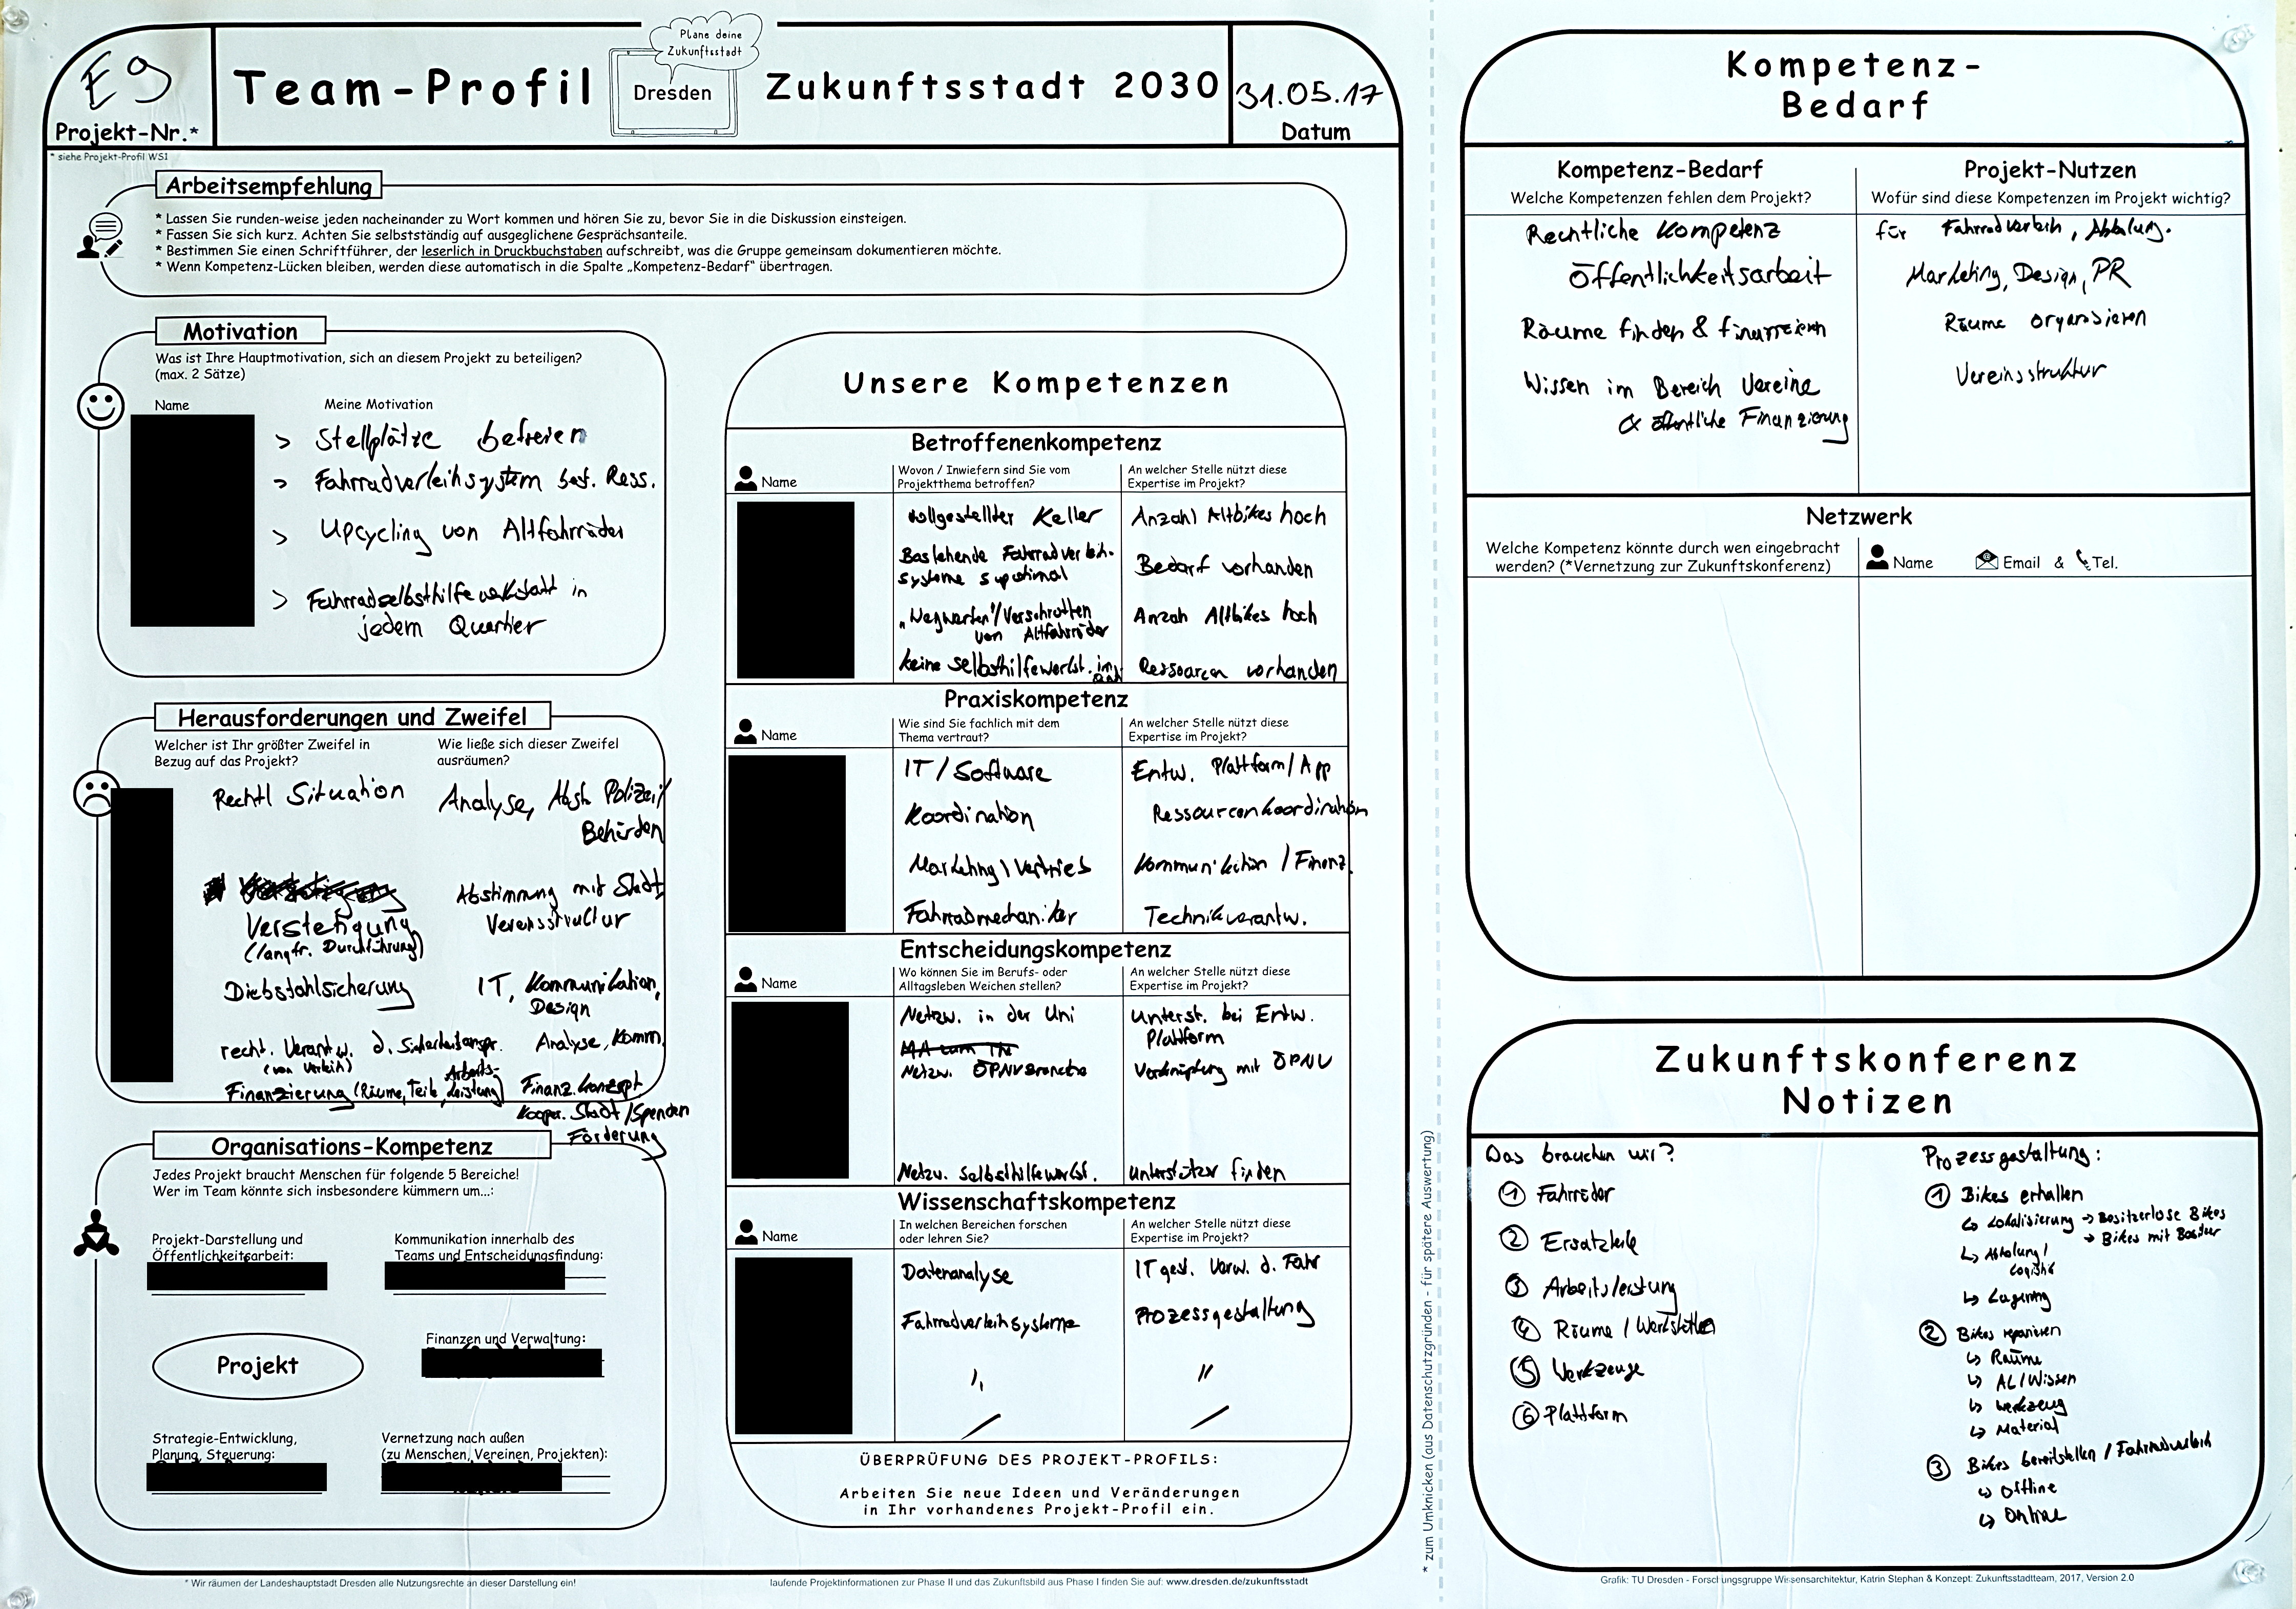 E9
Projekt-Nr.*
Team-Profil
Plane deine
Zukunftsstadt
Dresden
Zukunftsstadt 2030
31.05.17
Datum
* siehe Projekt-Profil WS1
Arbeitsempfehlung
* Lassen Sie runden-weise jeden nacheinander zu Wort kommen und hören Sie zu, bevor Sie in die Diskussion einsteigen.
* Fassen Sie sich kurz. Achten Sie selbstständig auf ausgeglichene Gesprächsanteile.
* Bestimmen Sie einen Schriftführer, der leserlich in Druckbuchstaben aufschreibt, was die Gruppe gemeinsam dokumentieren möchte.
* Wenn Kompetenz-Lücken bleiben, werden diese automatisch in die Spalte „Kompetenz-Bedarf" übertragen.
Motivation
Was ist Ihre Hauptmotivation, sich an diesem Projekt zu beteiligen?
(max. 2 Sätze)
Name Meine Motivation
> Stellplätze befreien
> Fahrradverleihsystem best. Ress.
> Upcycling von Altfahrräder
> Fahrradselbsthilfewerkstatt in
jedem Quartier
Herausforderungen und Zweifel
Welcher ist Ihr größter Zweifel in
Bezug auf das Projekt?
Wie ließe sich dieser Zweifel
ausräumen?
Rechtl Situation
Analyse, Abst. Polizei/
Behörden
Verstetigung
(langfr. Durchführung)
Abstimmung mit Stadt
Vereinsstruktur
Diebstahlsicherung
IT, Kommunikation,
Design
recht. Verantw. d. Sicherheitsanspr.
(von Verleih)
Analyse, Komm.
Arbeits-
Finanzierung (Räume, Teile, Leistung)
Finanz.konzept
Kooper. Stadt / Spenden
Förderung
Organisations-Kompetenz
Jedes Projekt braucht Menschen für folgende 5 Bereiche!
Wer im Team könnte sich insbesondere kümmern um...:
Projekt-Darstellung und
Öffentlichkeitsarbeit:
Kommunikation innerhalb des
Teams und Entscheidungsfindung:
Projekt
Finanzen und Verwaltung:
Strategie-Entwicklung,
Planung, Steuerung:
Vernetzung nach außen
(zu Menschen, Vereinen, Projekten):
* Wir räumen der Landeshauptstadt Dresden alle Nutzungsrechte an dieser Darstellung ein!
Unsere Kompetenzen
Betroffenenkompetenz
Name
Wovon / Inwiefern sind Sie vom
Projektthema betroffen?
An welcher Stelle nützt diese
Expertise im Projekt?
vollgestellter Keller
Anzahl Altbikes hoch
Bestehende Fahrradverleih-
systeme suboptimal
Bedarf vorhanden
„Wegwerfen"/Verschrotten
von Altfahrräder
Anzah Altbikes hoch
keine selbsthilfewerkst. im
Ressourcen vorhanden
Praxiskompetenz
Name
Wie sind Sie fachlich mit dem
Thema vertraut?
An welcher Stelle nützt diese
Expertise im Projekt?
IT / Software
Entw. Plattform / App
Koordination
Ressourcenkoordination
Marketing / Vertrieb
Kommunikation / Finanz.
Fahrradmechaniker
Technikverantw.
Entscheidungskompetenz
Name
Wo können Sie im Berufs- oder
Alltagsleben Weichen stellen?
An welcher Stelle nützt diese
Expertise im Projekt?
Netzw. in der Uni
Unterst. bei Entw.
Plattform
Netzw. ÖPNVBranche
Verknüpfung mit ÖPNV
Netzw. Selbsthilfewerkst.
Unterstützer finden
Wissenschaftskompetenz
Name
In welchen Bereichen forschen
oder lehren Sie?
An welcher Stelle nützt diese
Expertise im Projekt?
Datenanalyse
IT gest. Verw. d. Fahr
Fahrradverleihsysteme
Prozessgestaltung
"
"
ÜBERPRÜFUNG DES PROJEKT-PROFILS:
Arbeiten Sie neue Ideen und Veränderungen
in Ihr vorhandenes Projekt-Profil ein.
laufende Projektinformationen zur Phase II und das Zukunftsbild aus Phase I finden Sie auf: www.dresden.de/zukunftsstadt
* zum Umknicken (aus Datenschutzgründen - für spätere Auswertung)
Kompetenz-
Bedarf
Kompetenz-Bedarf
Welche Kompetenzen fehlen dem Projekt?
Projekt-Nutzen
Wofür sind diese Kompetenzen im Projekt wichtig?
Rechtliche Kompetenz
für Fahrradverleih, Abholung.
Öffentlichkeitsarbeit
Marketing, Design, PR
Räume finden & finanzieren
Räume organisieren
Wissen im Bereich Vereine
& öffentliche Finanzierung
Vereinsstruktur
Netzwerk
Welche Kompetenz könnte durch wen eingebracht
werden? (*Vernetzung zur Zukunftskonferenz)
Name Email & Tel.
Zukunftskonferenz
Notizen
Das brauchen wir?
① Fahrräder
② Ersatzteile
③ Arbeitsleistung
④ Räume / Werkstätten
⑤ Werkzeuge
⑥ Plattform
Prozessgestaltung:
① Bikes erhalten
↳ Lokalisierung → Besitzerlose Bikes
→ Bikes mit Besitzer
↳ Abholung /
Logistik
↳ Lagerung
② Bikes reparieren
↳ Räume
↳ AL / Wissen
↳ Werkzeug
↳ Material
③ Bikes bereitstellen / Fahrradverleih
↳ Offline
↳ Online
Grafik: TU Dresden - Forschungsgruppe Wissensarchitektur, Katrin Stephan & Konzept: Zukunftsstadtteam, 2017, Version 2.0